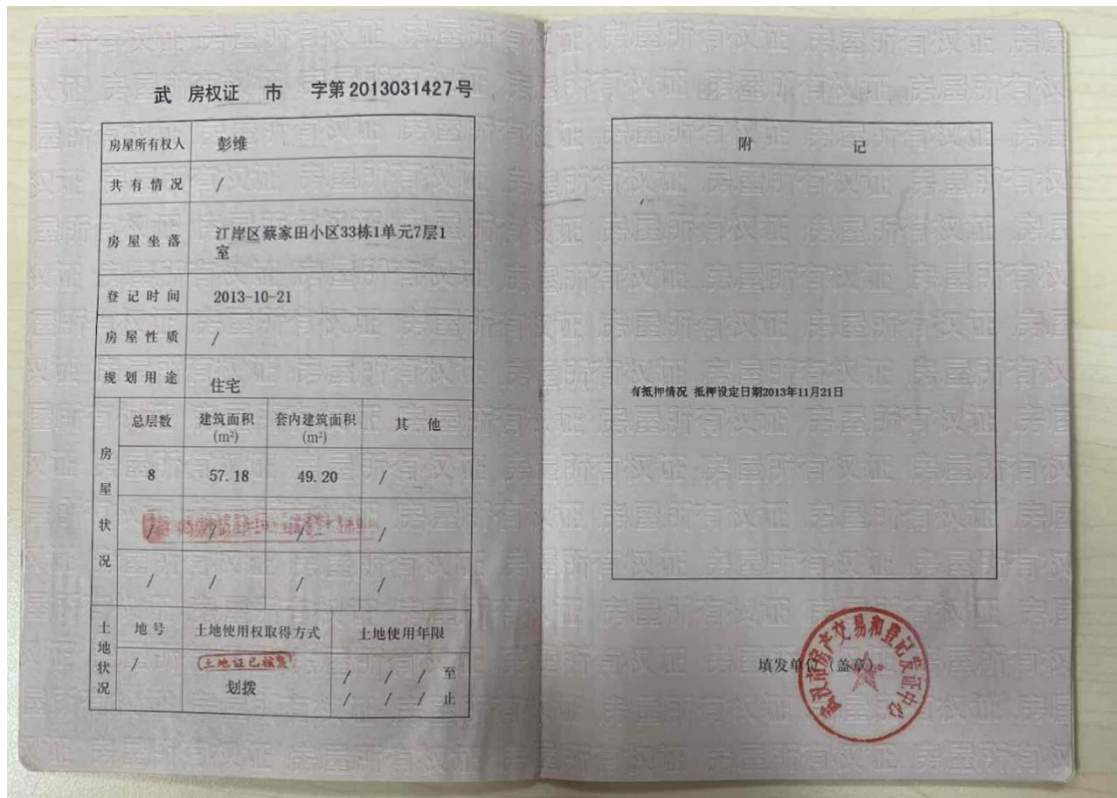 武 房权证 市 字第2013031427号
房屋所有权人 彭维
共有情况 /
房屋坐落 江岸区蔡家田小区33栋1单元7层1
室
登记时间 2013-10-21
房屋性质 /
规划用途 住宅
房屋状况
总层数 建筑面积(m²) 套内建筑面积(m²) 其他
8 57.18 49.20 /
/ / / /
/ / / /
土地状况
地号 土地使用权取得方式 土地使用年限
/ 土地证已核发 / / / 至
划拨 / / / 止
附 记
有抵押情况 抵押设定日期2013年11月21日
填发单位(盖章)
武汉市房产交易和登记发证中心